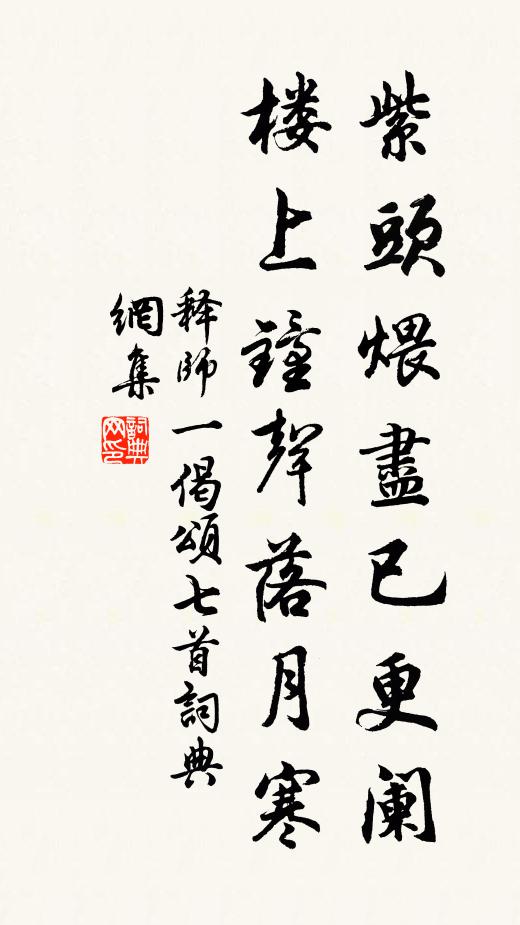 紫頭煨盡已更阑
楼上鐘聲落月寒
释師一偈頌七首詞典
網集
詞典
网印